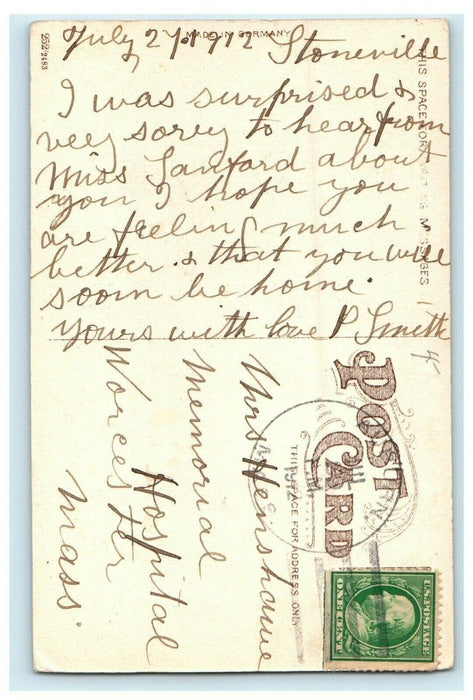 252 2483
MADE IN GERMANY
July 2/1912 Stoneville
I was surprised &
very sorry to hear from
Miss Sanford about
you I hope you
are feeling much
better. & that you will
soon be home.
Yours with love P Smith
THIS SPACE FOR MESSAGES
4
POST CARD
THIS SPACE FOR ADDRESS ONLY
Mrs Heinshawe
Memorial
Hospital
Worcester
Mass.
1912
U.S. POSTAGE
ONE CENT